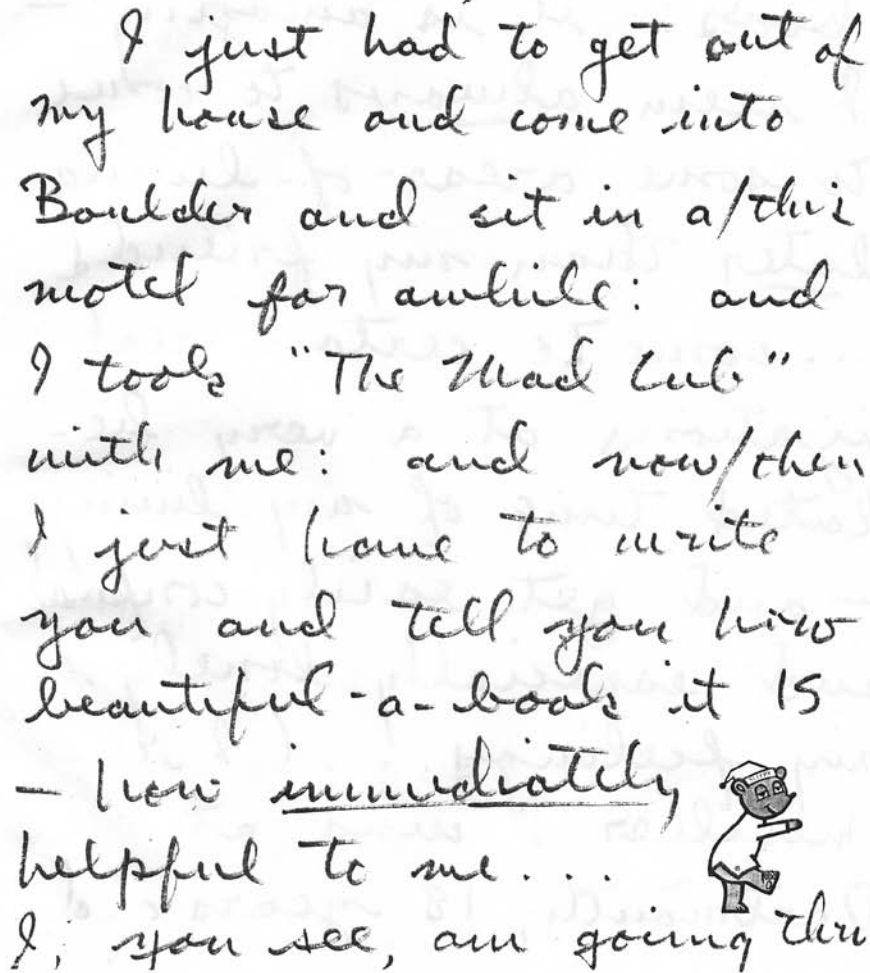 I just had to get out of
my house and come into
Boulder and sit in a/this
motel for awhile: and
I took "The Mad Cub"
with me: and now/then
I just have to write
you and tell you how
beautiful-a-book it is
— how immediately
helpful to me...
I, you see, am going thru